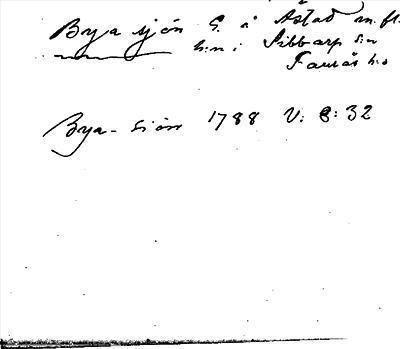 Bya sjön S. å Åstad m. fl.
h:n i Sibbarp s:n
Faurås h:d
Bya-siön 1788 V: 8: 32